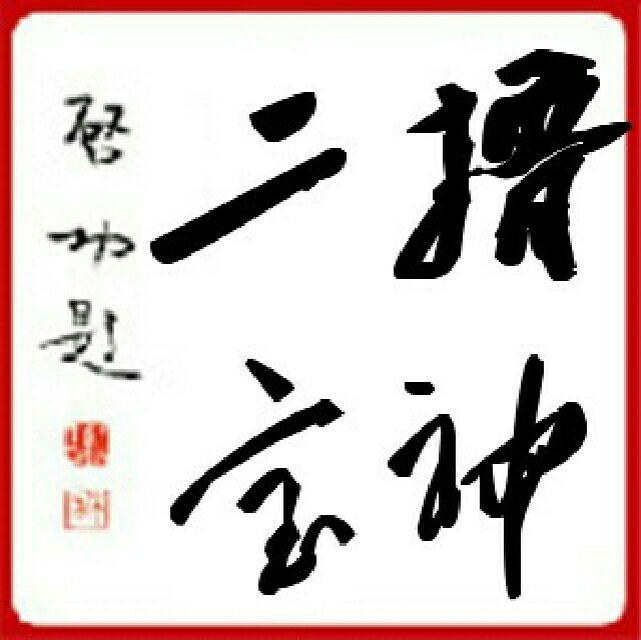 神
二宝
启功题